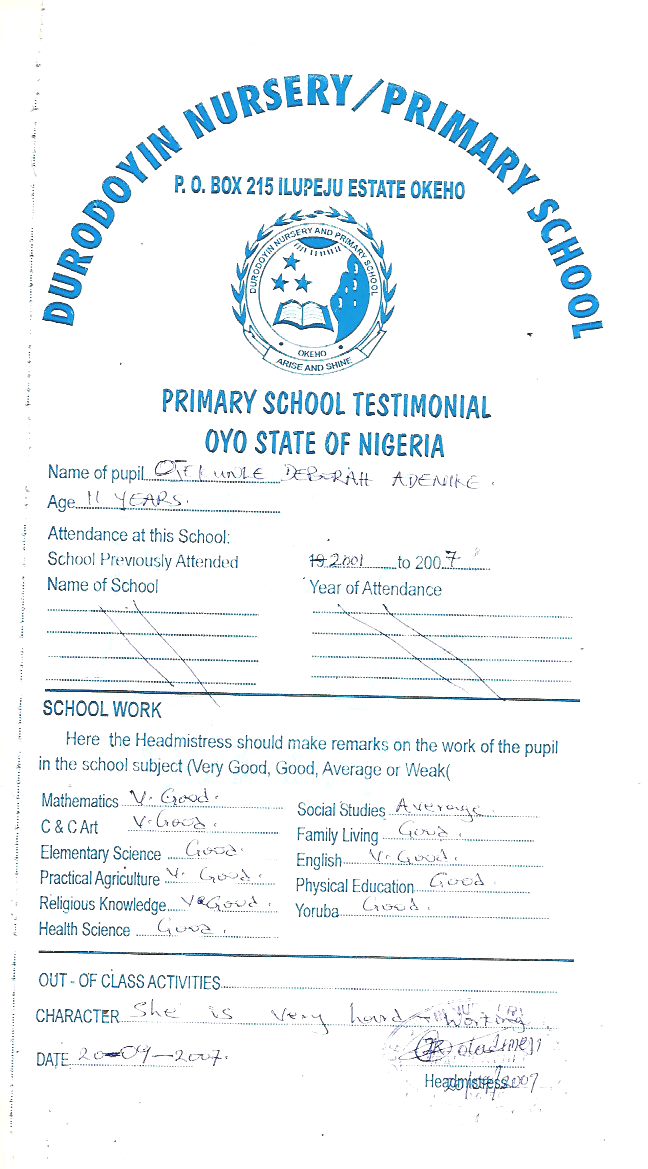 DURODOYIN NURSERY/PRIMARY SCHOOL
P. O. BOX 215 ILUPEJU ESTATE OKEHO
DURODOYIN NURSERY AND PRIMARY SCHOOL
OKEHO
ARISE AND SHINE
PRIMARY SCHOOL TESTIMONIAL
OYO STATE OF NIGERIA
Name of pupil OTEKUNLE DEBORAH ADENIKE.
Age 11 YEARS.
Attendance at this School:
School Previously Attended 19 2001 to 2007
Name of School Year of Attendance
SCHOOL WORK
Here the Headmistress should make remarks on the work of the pupil
in the school subject (Very Good, Good, Average or Weak(
Mathematics V. Good. Social Studies Average.
C & C Art V. Good. Family Living Good.
Elementary Science Good. English V. Good.
Practical Agriculture V. Good. Physical Education Good.
Religious Knowledge V. Good. Yoruba Good.
Health Science Good.
OUT - OF CLASS ACTIVITIES
CHARACTER She is very hard working.
DATE 20-09-2007.
Headmistress